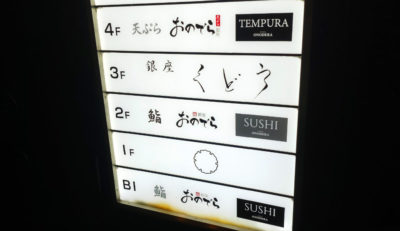 4F 天ぷら おのでら TEMPURA ONODERA
3F 銀座 くどう
2F 鮨 おのでら SUSHI ONODERA
1F
B1 鮨 おのでら SUSHI ONODERA